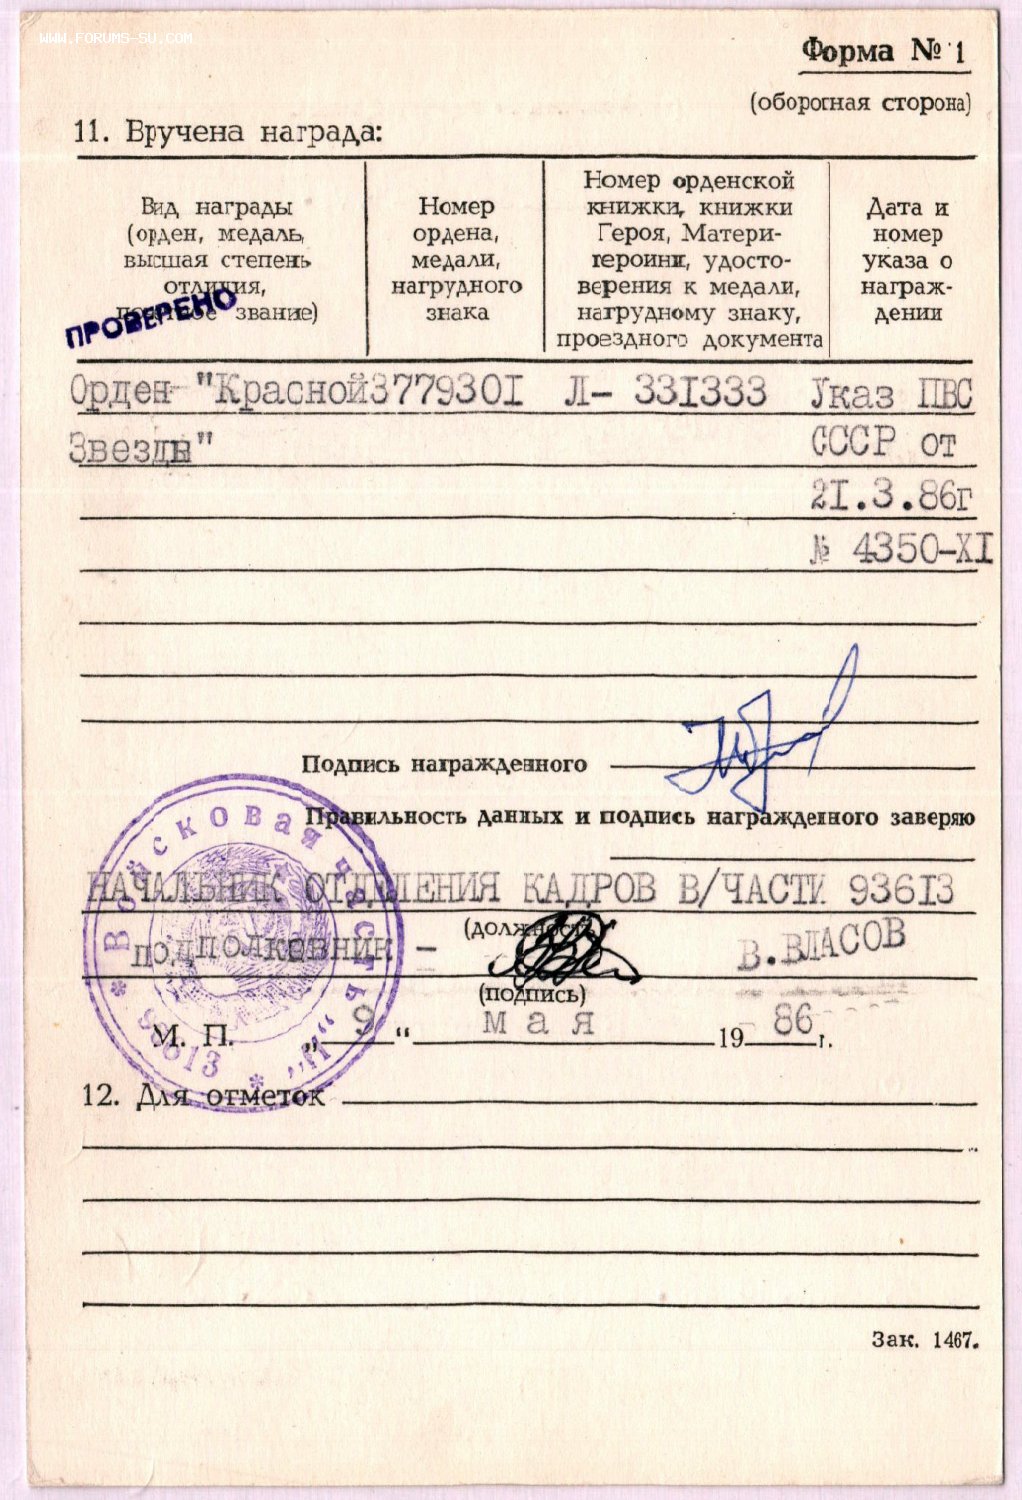 WWW.FORUMS-SU.COM
Форма № 1
(оборотная сторона)
11. Вручена награда:
Вид награды
(орден, медаль,
высшая степень
отличия,
почетное звание)
Номер
ордена,
медали,
нагрудного
знака
Номер орденской
книжки, книжки
Героя, Матери-
героини, удосто-
верения к медали,
нагрудному знаку,
проездного документа
Дата и
номер
указа о
награж-
дении
ПРОВЕРЕНО
Орден "Красной 3779301 Л- 331333 Указ ПВС
Звезды" СССР от
21.3.86г
№ 4350-XI
Подпись награжденного
Правильность данных и подпись награжденного заверяю
НАЧАЛЬНИК ОТДЕЛЕНИЯ КАДРОВ В/ЧАСТИ 93613
(должность)
подполковник - В.ВЛАСОВ
(подпись)
М. П. „ 9 “ мая 19 86 г.
* Войсковая часть * 93613 *
12. Для отметок
Зак. 1467.